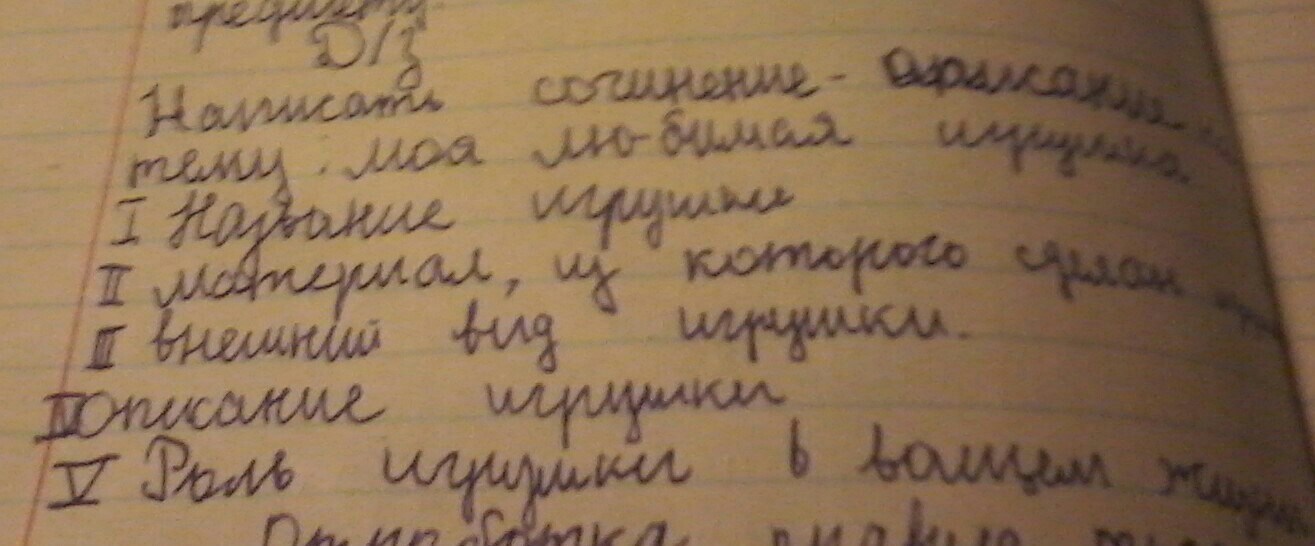 предмету.
Д/з
Написать сочинение- описание
тему: моя любимая игрушка.
I Название игрушки
II материал, из которого сделан
III внешний вид игрушки.
IV описание игрушки
V Роль игрушки в вашем жизни
Отработка правила